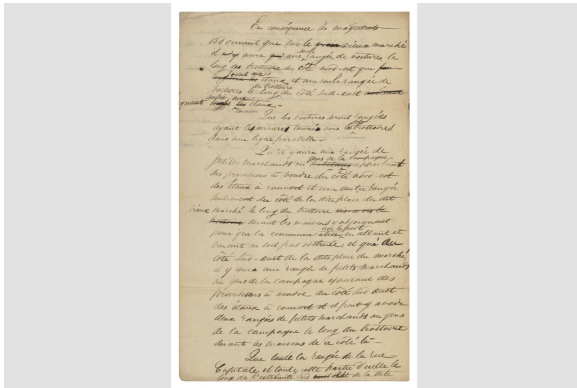 En conséquence les magistrats
ordonnent que sur le vieux marché
il y aura une seule rangée de voitures le
long du trottoir du côté nord-est que
joint aux étaux et une seule rangée de
voitures le long du trottoir du côté sud-ouest
étaux -
Que les voitures seront rangées
ayant les derrières tournés vers les trottoirs
dans une ligne parallèle -
Qu'il y aura une rangée de
petits marchands ou gens de la campagne apportant
des provisions à vendre du côté nord-est
des étaux à couvert et une autre rangée
seulement du côté de la dite place du dit
vieux marché le long du trottoir
devant les maisons y adjoignant
pour que la commune allant et
venant ne soit pas obstruée et qu'au
côté sud-ouest de la dite place du marché
il y aura une rangée de petits marchands
ou gens de la campagne apportant des
provisions à vendre du côté sud-ouest
des étaux à couvert et il pourra y avoir
deux rangées de petits marchands ou gens
de la campagne le long du trottoir
devant les maisons de ce côté là -
Que toute la rangée de la rue
Capitale et toute cette partie d'icelle le
long de l'extrémité de la dite